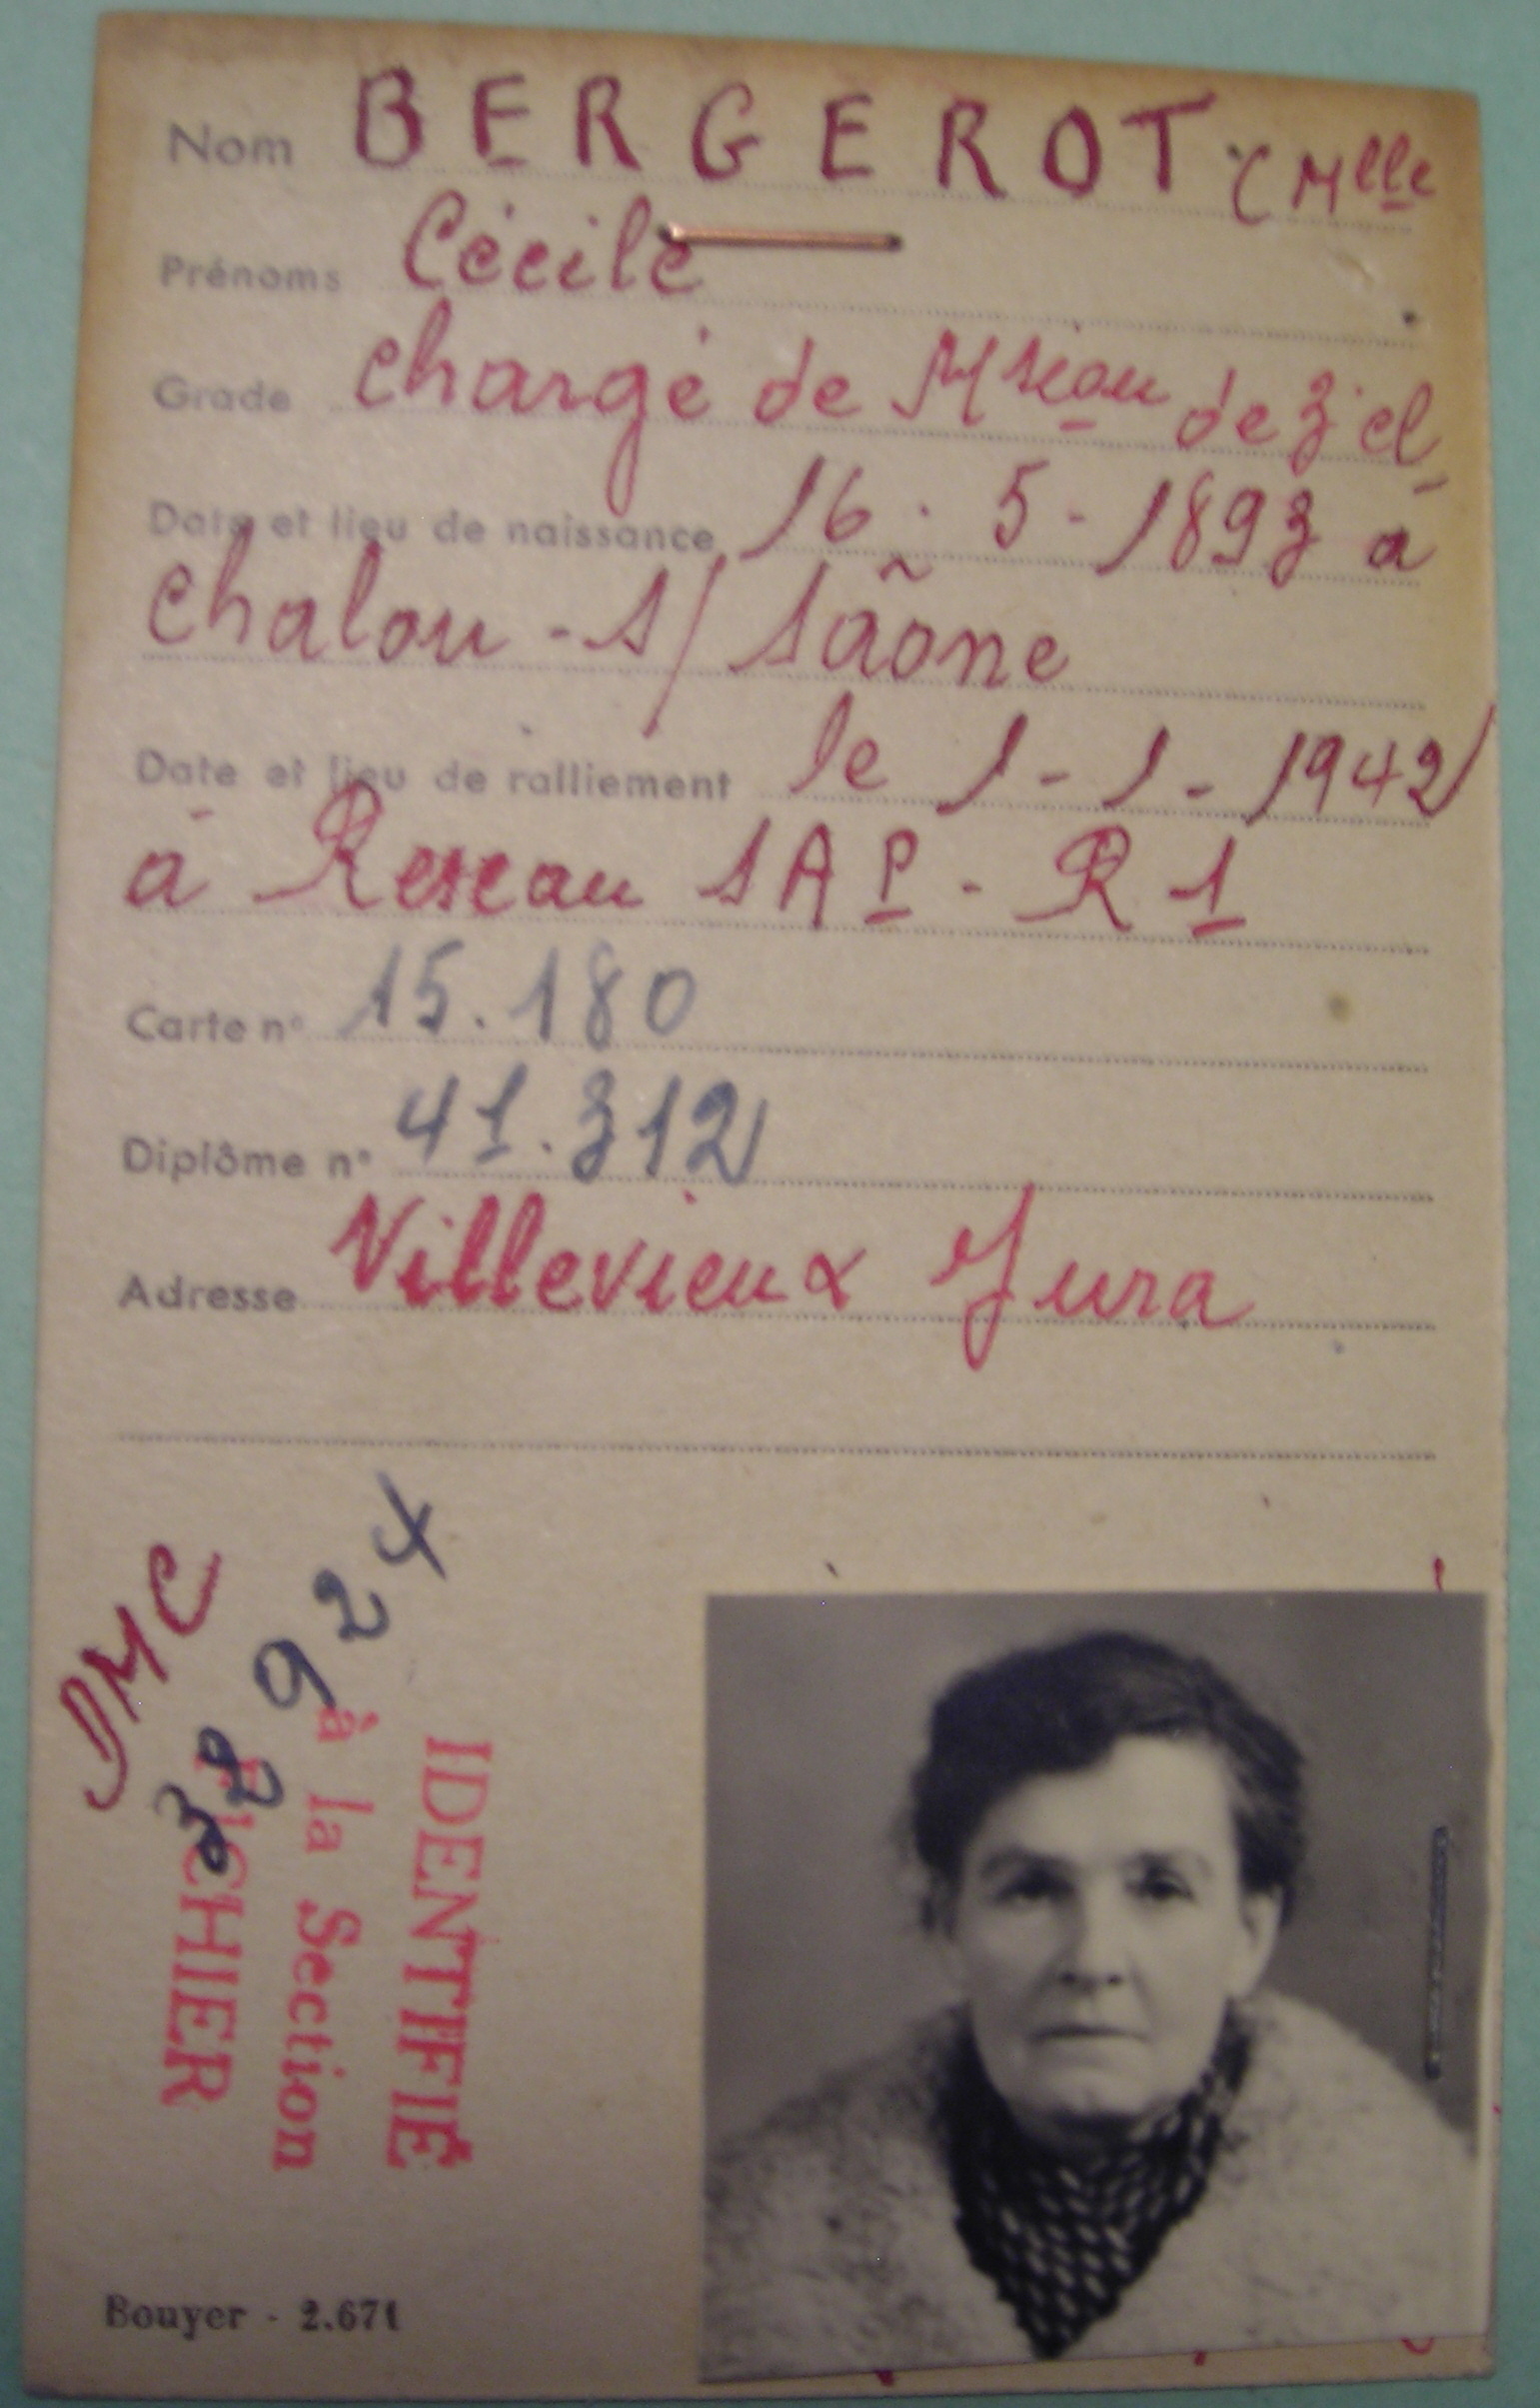 Nom BERGEROT (Mlle
Prénoms Cécile
Grade chargé de Mision de 3e cl
Date et lieu de naissance 16. 5. 1893 à
chalon - s/ Saône
Date et lieu de ralliement le 1 - 1 - 1942
à Reseau SAP - R1
Carte n° 15.180
Diplôme n° 41.312
Adresse Villevieux Jura
DMC
32924
IDENTIFIÉ
à la Section
FICHIER
Bouyer - 2.671